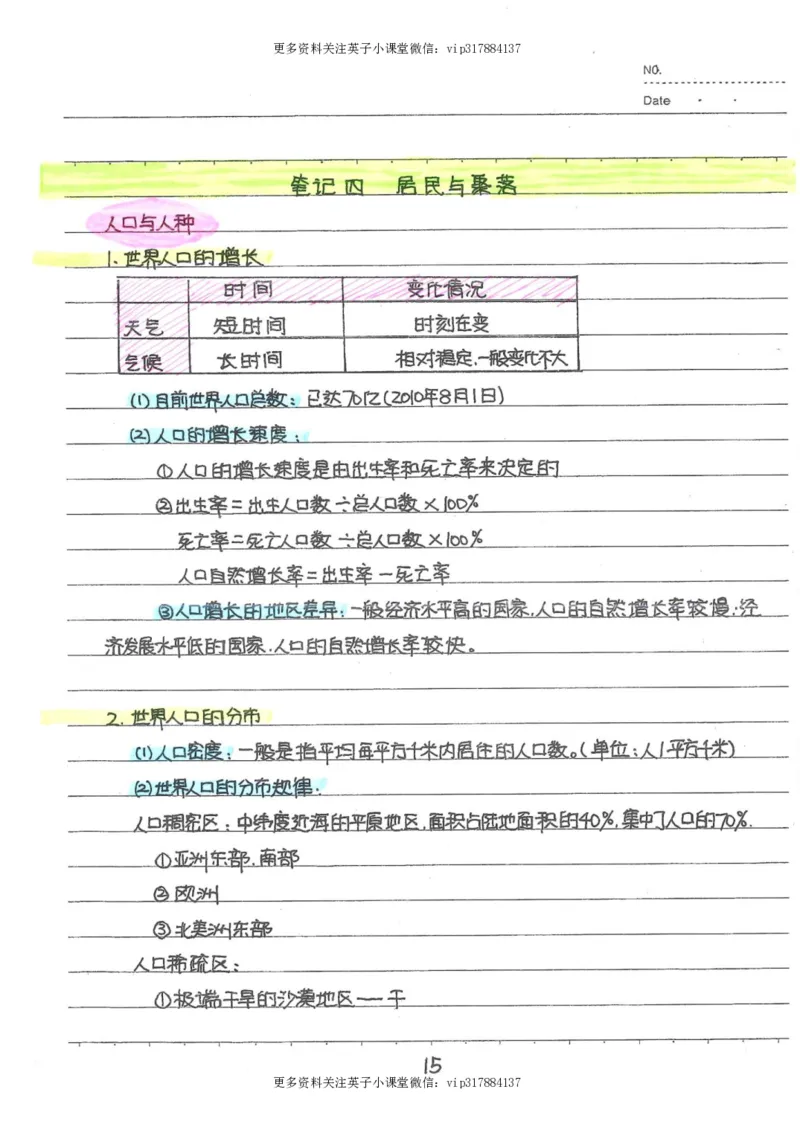 更多资料关注英子小课堂微信：vip317884137
NO.
Date
笔记四 居民与聚落
人口与人种
1.世界人口的增长
时间 变化情况
天气 短时间 时刻在变
气候 长时间 相对稳定.一般变化不大
(1)目前世界人口总数：已达70亿(2010年8月1日)
(2)人口的增长速度：
①人口的增长速度是由出生率和死亡率来决定的
②出生率=出生人口数÷总人口数×100%
死亡率=死亡人口数÷总人口数×100%
人口自然增长率=出生率-死亡率
③人口增长的地区差异：一般经济水平高的国家.人口的自然增长率较慢;经
济发展水平低的国家.人口的自然增长率较快。
2.世界人口的分布
(1)人口密度：一般是指平均每平方千米内居住的人口数。(单位:人/平方千米)
(2)世界人口的分布规律.
人口稠密区：中纬度近海的平原地区,面积占陆地面积的40%,集中了人口的70%.
①亚洲东部.南部
②欧洲
③北美洲东部
人口稀疏区：
①极端干旱的沙漠地区——干
15
更多资料关注英子小课堂微信：vip317884137